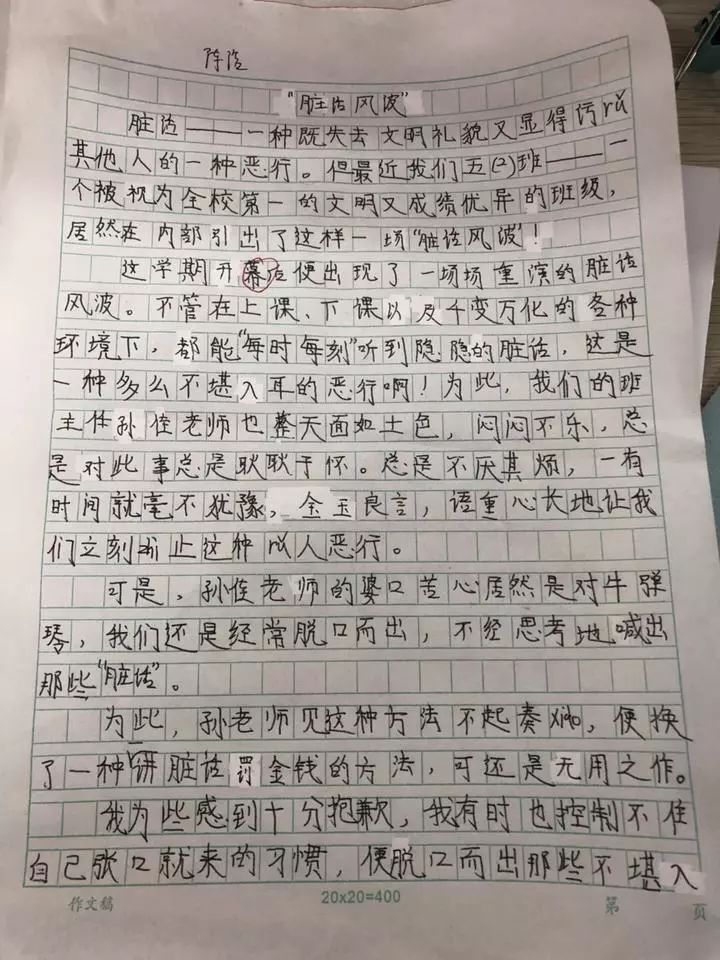 陈浩
“脏话风波”
脏话——一种既失去文明礼貌又显得污rǔ
其他人的一种恶行。但最近我们五(2)班——一
个被视为全校第一的文明又成绩优异的班级,
居然在内部引出了这样一场“脏话风波”!
这学期开幕后便出现了一场场重演的脏话
风波。不管在上课、下课以及千变万化的各种
环境下,都能“每时每刻”听到隐隐的脏话,这是
一种多么不堪入耳的恶行啊!为此,我们的班
主任孙佳老师也整天面如土色,闷闷不乐,总
是对此事总是耿耿于怀。总是不厌其烦,一有
时间就毫不犹豫,金玉良言,语重心长地让我
们立刻断止这种人恶行。
可是,孙佳老师的婆口苦心居然是对牛弹
琴,我们还是经常脱口而出,不经思考地喊出
那些“脏话”。
为此,孙老师见这种方法不起奏xiào,便换
了一种讲脏话罚金钱的方法,可还是无用之作。
我为些感到十分抱歉,我有时也控制不住
自己张口就来的习惯,便脱口而出那些不堪入
作文稿 20x20=400 第 页